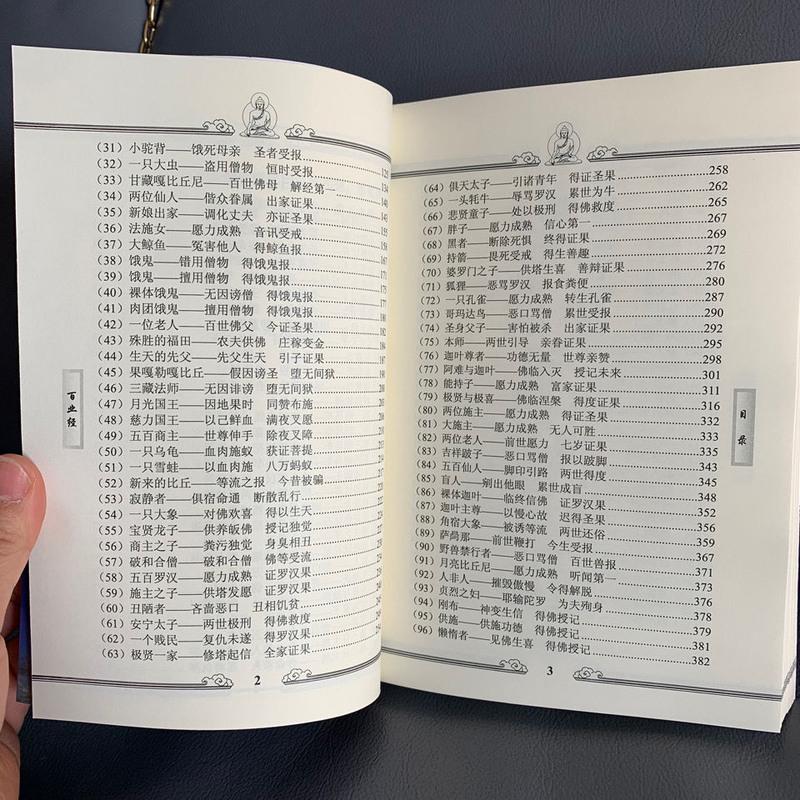 （31）小驼背——饿死母亲　圣者受报………125
（32）一只大虫——盗用僧物　恒时受报………134
（33）甘藏嘎比丘尼——百世佛母　解经第一………140
（34）两位仙人——偕众眷属　出家证果………143
（35）新娘出家——调化丈夫　亦证圣果………149
（36）法施女——愿力成熟　音讯受戒………155
（37）大鲸鱼——冤害他人　得鲸鱼报………156
（38）饿鬼——错用僧物　得饿鬼报………161
（39）饿鬼——擅用僧物　得饿鬼报………167
（40）裸体饿鬼——无因谤僧　得饿鬼报
（41）肉团饿鬼——擅用僧物　得饿鬼报
（42）一位老人——百世佛父　今证圣果
（43）殊胜的福田——农夫供佛　庄稼变金
（44）生天的先父——先父生天　引子证果
（45）果嘎勒嘎比丘——假因谤圣　堕无间狱
（46）三藏法师——无因诽谤　堕无间狱
（47）月光国王——因地果时　同赞布施
（48）慈力国王——以己鲜血　满夜叉愿
（49）五百商主——世尊伸手　除夜叉障
（50）一只乌龟——血肉施蚁　获证菩提
（51）一只雪蛙——以血肉施　八万蚂蚁
（52）新来的比丘——等流之报　今昔被骗
（53）寂静者——俱宿命通　断散乱行
（54）一只大象——对佛欢喜　得以生天
（55）宝贤龙子——供养皈佛　授记独觉
（56）商主之子——粪污独觉　身臭相丑
（57）破和合僧——破和合僧　佛等受流
（58）五百罗汉——愿力成熟　证罗汉果
（59）施主之子——供塔发愿　证罗汉果
（60）丑陋者——吝啬恶口　丑相饥贫
（61）安宁太子——两世极刑　得佛救度
（62）一个贱民——复仇未遂　得罗汉果
（63）极贤一家——修塔起信　全家证果
百业经
2
（64）俱天太子——引诸青年　得证圣果………258
（65）一头牦牛——辱骂罗汉　累世为牛………262
（66）悲贤童子——处以极刑　得佛救度………265
（67）胖子——愿力成熟　信心第一………267
（68）黑者——断除死惧　终得证果………269
（69）持箭——畏死受戒　得生善趣………272
（70）婆罗门之子——供塔生喜　善辩证果………276
（71）狐狸——恶骂罗汉　报食粪便………280
（72）一只孔雀——愿力成熟　转生孔雀………287
（73）哥玛达鸟——恶口骂僧　累世受报………290
（74）圣身父子——害怕被杀　出家证果………292
（75）本师——两世引导　亲眷证果………295
（76）迦叶尊者——功德无量　世尊亲赞………298
（77）阿难与迦叶——佛临入灭　授记未来………301
（78）能持子——愿力成熟　富家证果………311
（79）极贤与极喜——佛临涅槃　得度证果………316
（80）两位施主——愿力成熟　得证圣果………332
（81）大施主——愿力成熟　无人可胜………333
（82）两位老人——前世愿力　七岁证果………335
（83）吉祥跛子——恶口骂僧　报以跛脚………343
（84）五百仙人——脚印引路　两世得度………345
（85）盲人——剜出他眼　累世成盲………348
（86）裸体迦叶——临终信佛　证罗汉果………352
（87）迦叶主尊——以慢心故　迟得圣果………355
（88）角宿大象——被诱等流　两世还俗………359
（89）萨尚那——前世鞭打　今生受报………367
（90）野兽禁行者——恶口骂僧　百世兽报………371
（91）月亮比丘尼——愿力成熟　听闻第一………373
（92）人非人——摧毁傲慢　令得解脱………376
（93）贞烈之妇——耶输陀罗　为夫殉身………378
（94）刚布——神变生信　得佛授记………379
（95）供施——供施功德　得佛授记………381
（96）懒惰者——见佛生喜　得佛授记………382
目录
3